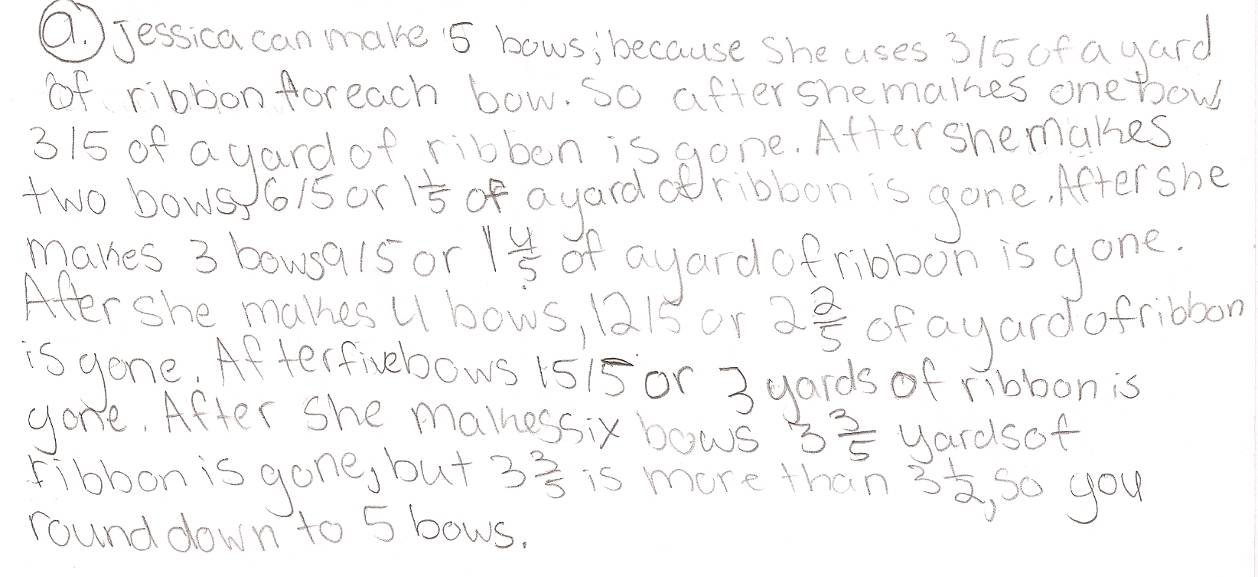 a. Jessica can make 5 bows; because she uses 3/5 of a yard
of ribbon for each bow. So after she makes one bow
3/5 of a yard of ribbon is gone. After she makes
two bows, 6/5 or 1 1/5 of a yard of ribbon is gone. After she
makes 3 bows 9/5 or 1 4/5 of a yard of ribbon is gone.
After she makes 4 bows, 12/5 or 2 2/5 of a yard of ribbon
is gone. After five bows 15/5 or 3 yards of ribbon is
gone. After she makes six bows 3 3/5 yards of
ribbon is gone, but 3 3/5 is more than 3 1/2, so you
round down to 5 bows.